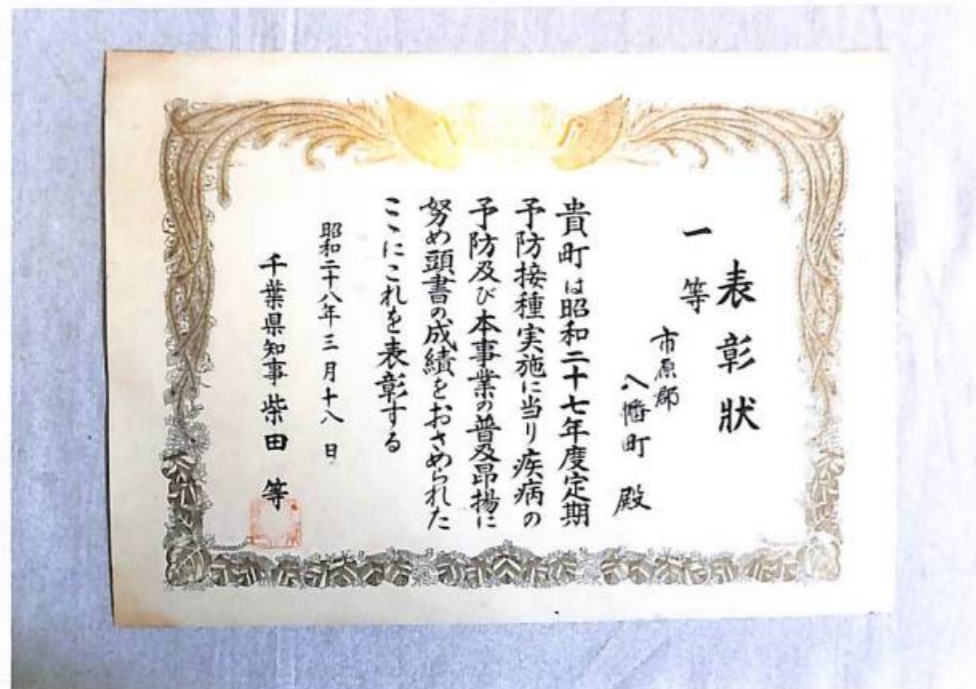 表彰状
一等
市原郡
八幡町 殿
貴町は昭和二十七年度定期
予防接種実施に当り疾病の
予防及び本事業の普及昂揚に
努め頭書の成績をおさめられた
ここにこれを表彰する
昭和二十八年三月十八日
千葉県知事 柴田 等